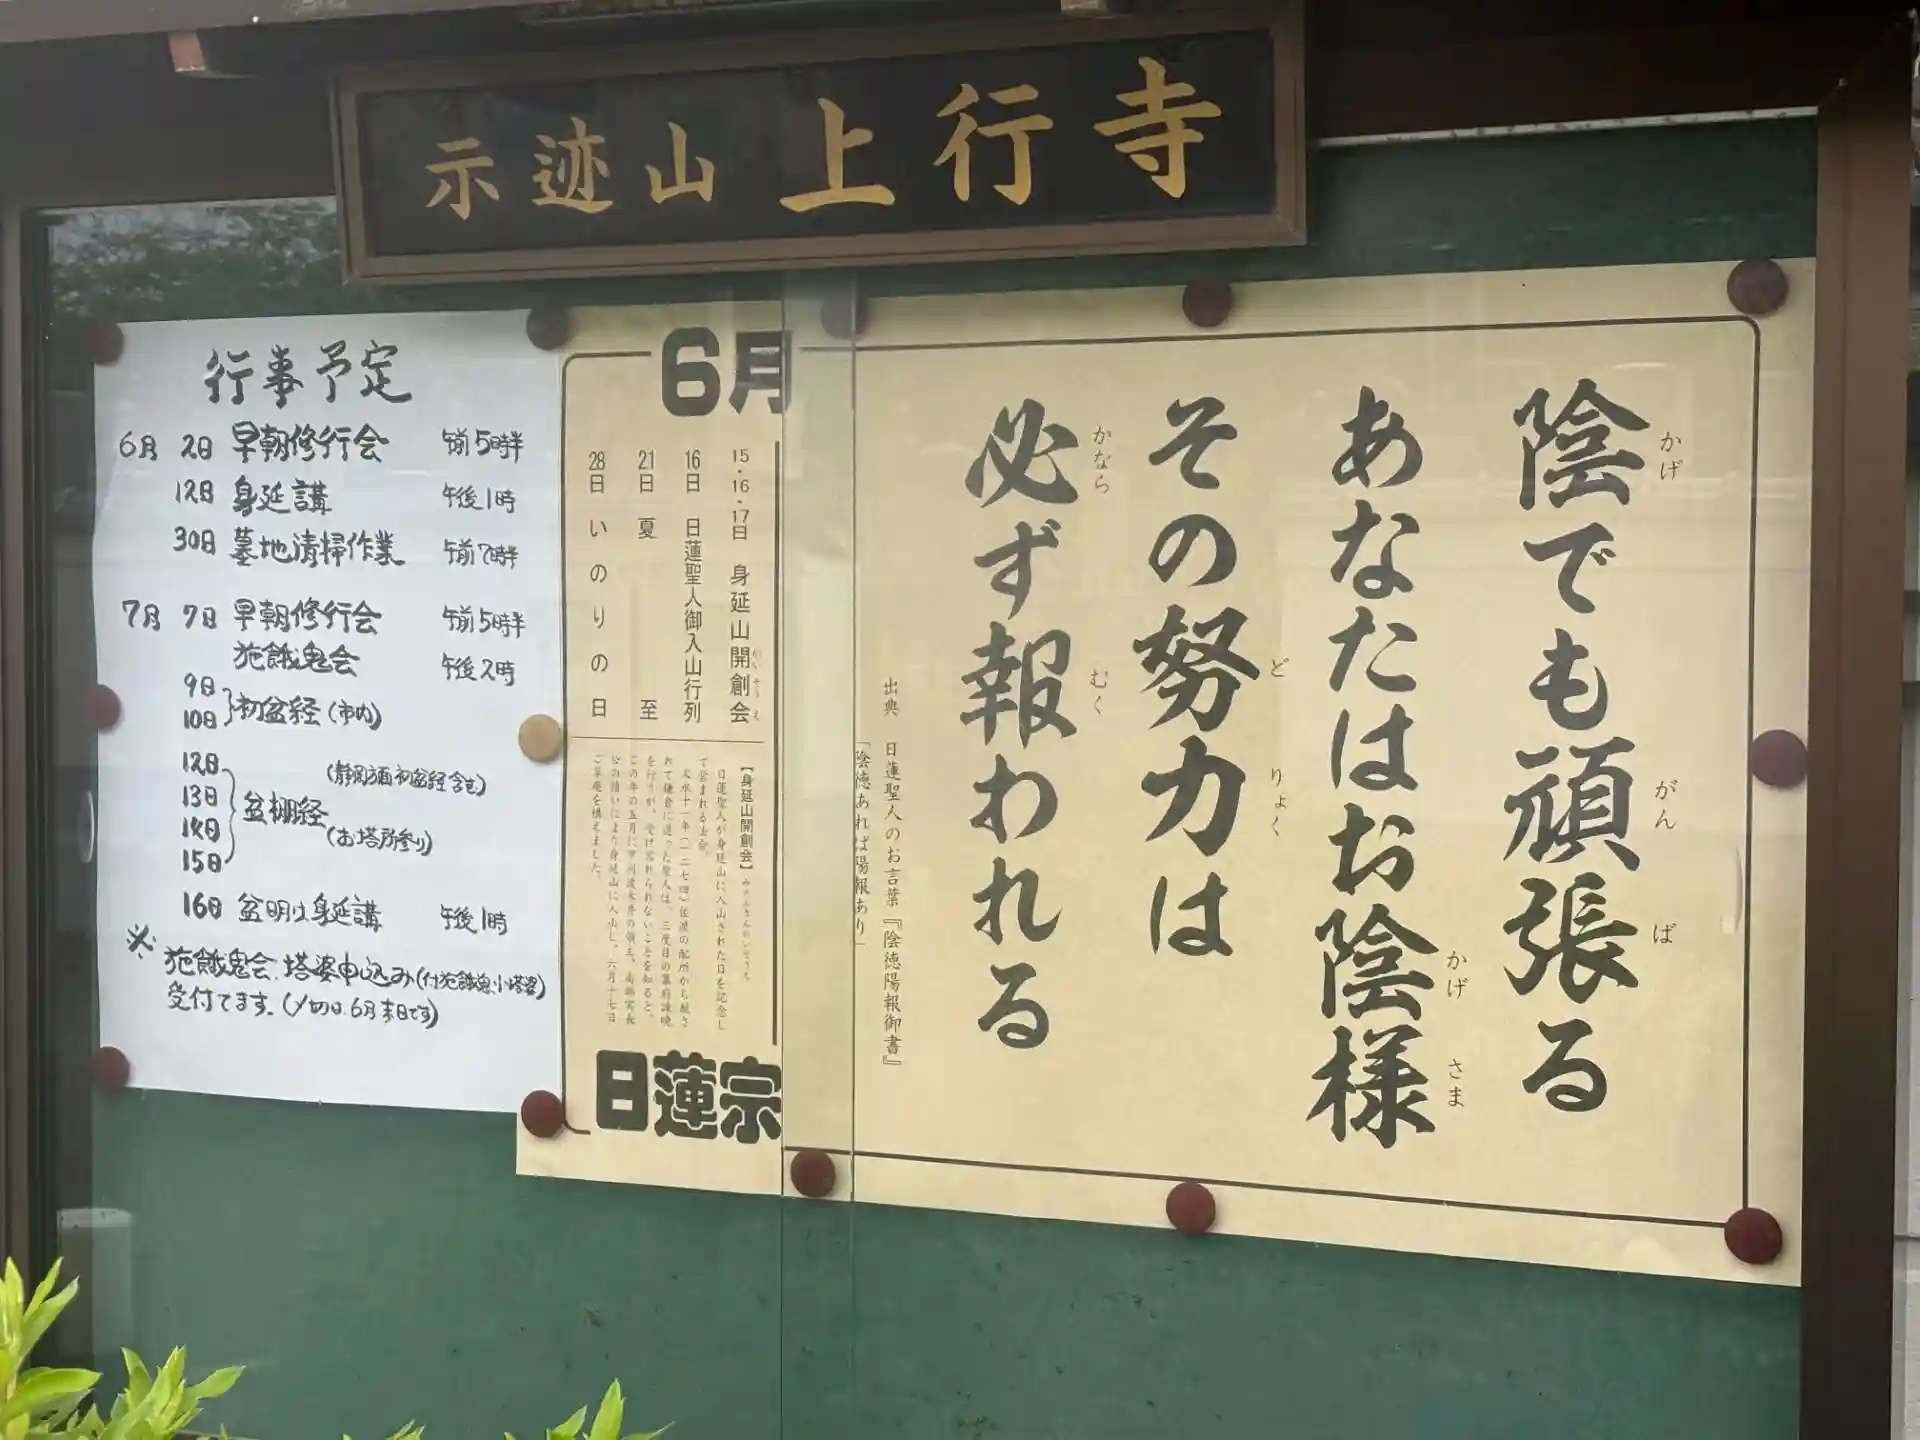 示迹山 上行寺
行事予定
6月 2日 早朝修行会 午前5時半
12日 身延講 午後1時
30日 墓地清掃作業 午前7時半
7月 7日 早朝修行会 午前5時半
施餓鬼会 午後2時
9日
10日 初盆経(市内)
12日 (静岡方面初盆経含む)
13日 盆棚経
14日 (お塔所参り)
15日
16日 盆明け身延講 午後1時
※施餓鬼会、塔婆申込み(付施餓鬼小塔婆)
受付てます。(〆切は、6月末日です)
陰でも頑張る
かげ がん ば
あなたはお陰様
かげ さま
その努力は
ど りょく
必ず報われる
かなら むく
出典 日蓮聖人のお言葉『陰徳陽報御書』
「陰徳あれば陽報あり」
6月
15・16・17日 身延山開創会
かい そう え
16日 日蓮聖人御入山行列
21日 夏至
28日 いのりの日
【身延山開創会】みのぶさんかいそうえ
日蓮聖人が身延山に入山された日を記念し
て営まれる法会。
文永十一年(一二七四)佐渡の配所から赦さ
れて鎌倉に還った聖人は、三度目の幕府諫暁
を行うが、受け容れられないことを知ると、
この年の五月に甲州波木井の領主、南部実長
公の請いにより身延山に入山し、六月十七日
ご草庵を構えました。
日蓮宗